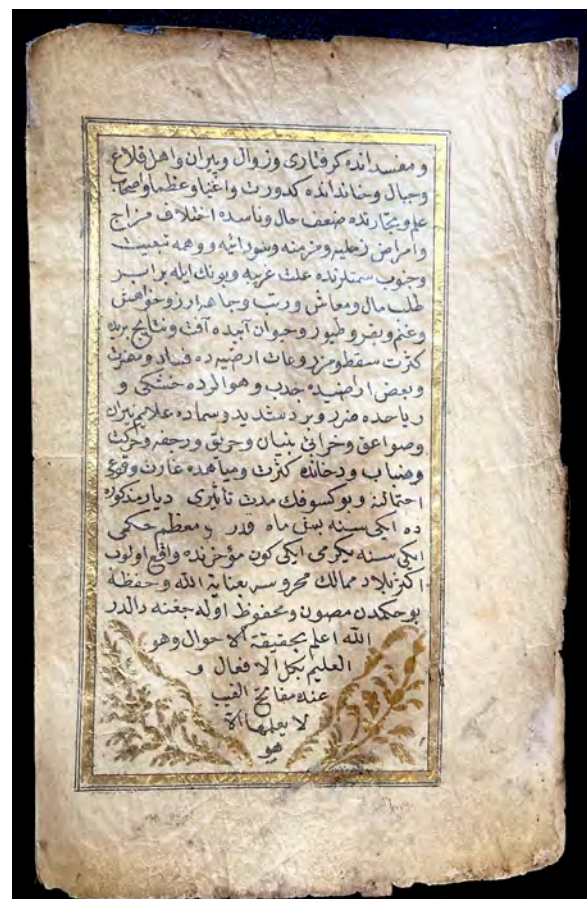 و مفسدانده كرفتارى وزوال وپيران واهل قلاع
وجبال وخاندانده كدورت واغنيا وعظما واصحاب
علم وتجارنده ضعف حال وناسده اختلاف مزاج
وامراض زحليه ومزمنه وسودائيه ووهمه تبعيت
وجنوب سمتلرنده علت غريبه وبونك ايله برابر
طلب مال ومعاش ورتب وجاهه ارزو وخواهش
وغنم وبقر وطيور وحيوان آبيده آفت ونتايج بريده
كثرت سقط ومزروعات ارضيه ده فساد ومضرت
وبعض اراضيده جدب وهوالرده خشكى و
رياحده ضرر وبرد شديد وسماده علايم نيران
وصواعق وخرابئ بنيان وحريق ورجفه وحركت
وضباب ودخانده كثرت ومياهده غارت وقوعى
احتمالنه وبوكسوفك مدت تأثيرى ديار مذكوره
ده ايكى سنه بش ماه قدر ومعظم حكمى
ايكى سنه يكرمى ايكى كون مؤخرنده واقع اولوب
اكثر بلاد ممالك محروسه بعناية الله وحفظه
بوحكمدن مصون ومحفوظ اوله جغنه دالدر
الله اعلم بحقيقة الاحوال وهو
العليم بكل الافعال و
عنده مفاتح الغيب
لا يعلمها الا
هو